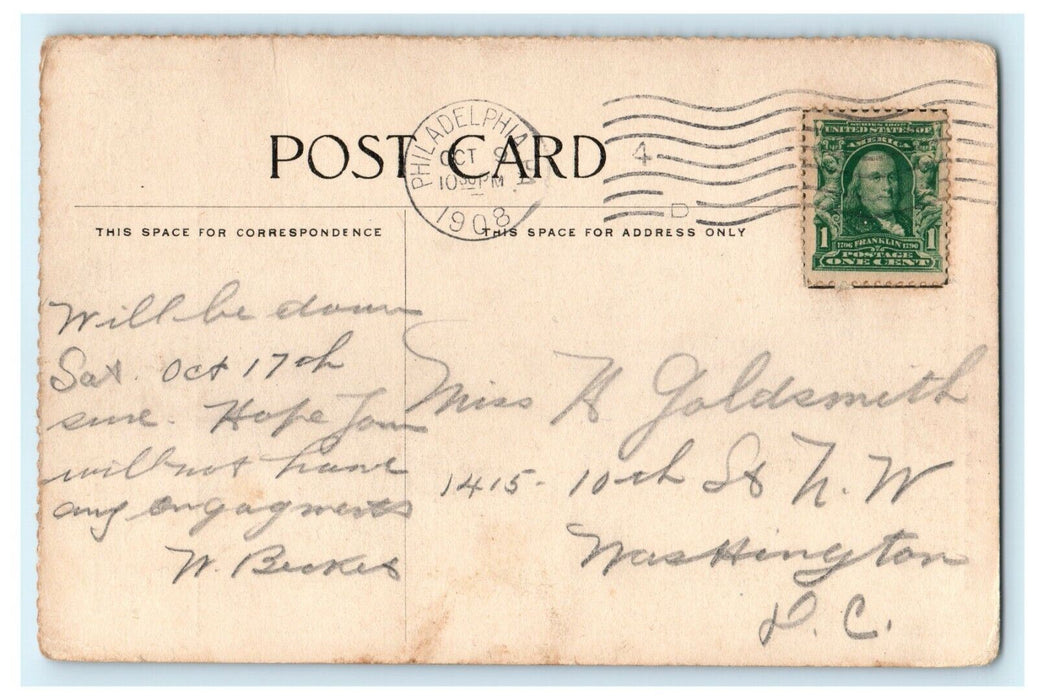 POST CARD
PHILADELPHIA, PA.
OCT 9
10 30 PM
1908
4
D
SERIES 1902
UNITED STATES OF
AMERICA
1 1
1706 FRANKLIN 1790
POSTAGE
ONE CENT
THIS SPACE FOR CORRESPONDENCE
THIS SPACE FOR ADDRESS ONLY
Will be down
Sat. Oct 17th
sure. Hope you
will not have
any engagments
W.
Miss H Goldsmith
1415- 10th St N.W
Washington
D.C.